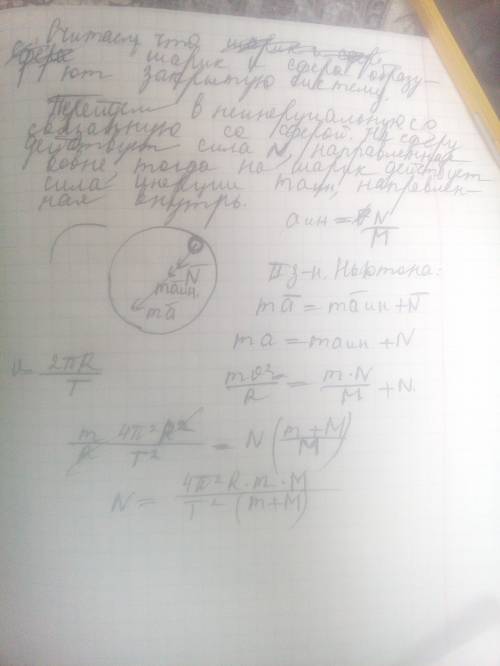 Считаем, что шарик и сфера
сфера шарик и сфера образу-
ют закрытую систему.
Перейдем в неинерциальную со
связанную со сферой. На сферу
действует сила N, направленная
вовне, тогда на шарик действует
сила инерции maин, направлен-
ная внутрь.
aин = N/M
N
maин.
ma
II з-н. Ньютона:
ma = maин + N
ma = maин + N
v = 2πR/T
mv²/R = m·N/M + N
m/R · 4π²R²/T² = N (m+M/M)
N = 4π²R·m·M/T²(m+M)